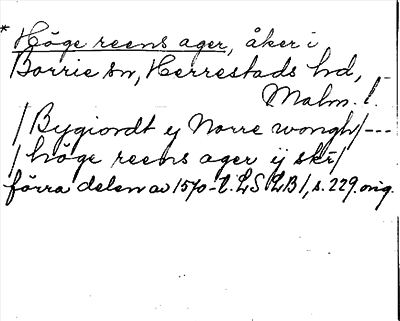 * Höge reens ager, åker i
Borrie sn, Herrestads hd,
Malm. l.
/Bygiordt ij Norre wongh/---
/höge reens ager ij skr/
förra delen av 1570-t. LSLB1, s. 229. orig.